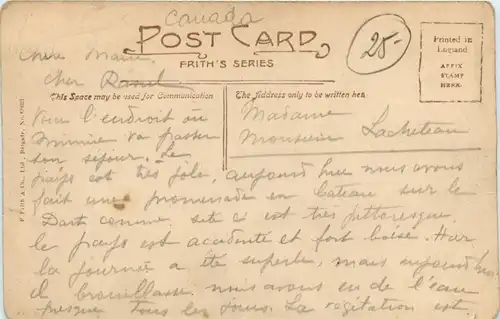 Canada
POST CARD
FRITH'S SERIES
25-
Printed in
England
AFFIX
STAMP
HERE.
Chère Marie,
Cher Raoul
This Space may be used for Communication
The Address only to be written here
F. Frith & Co., Ltd., Reigate, No.
Madame
Monsieur Lacheteau
l'endroit où
Minnie va passer
son séjour. Le
pays est très joli, aujourd'hui nous avons
fait une promenade en bateau sur le
Dart comme site c'est très pittoresque.
le pays est accidenté et fort boisé. Hier
la journée a été superbe, mais aujourd'hui
il brouillasse. nous avons eu de l'eau
presque tous les jours. La végétation est